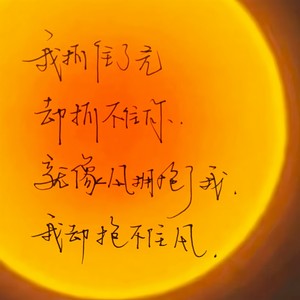 我抓住了光
却抓不住你.
就像风拥抱了我.
我却抱不住风.